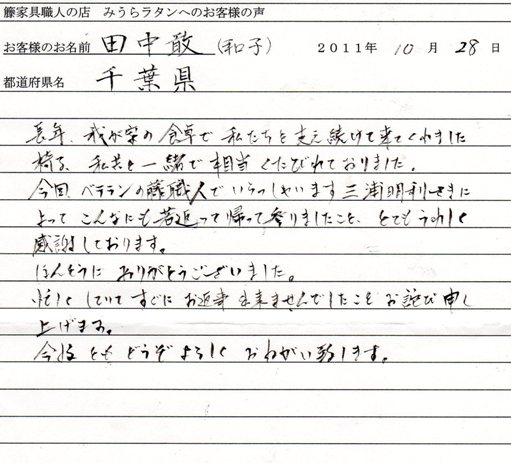 籐家具職人の店　みうらラタンへのお客様の声
お客様のお名前 田中敢(和子) 2011年 10月 28日
都道府県名 千葉県
長年、我が家の食卓で 私たちを支え続けて来てくれました
椅子、私共と一緒で相当くたびれておりました。
今回 ベテランの籐職人でいらっしゃいます三浦明利さまに
よって こんなにも若返って帰って参りましたこと、とてもうれしく
感謝しております。
ほんとうに ありがとうございました。
忙しくしていて すぐに お返事 出来ませんでしたことお詫び申し
上げます。
今後とも どうぞ よろしく おねがい致します。